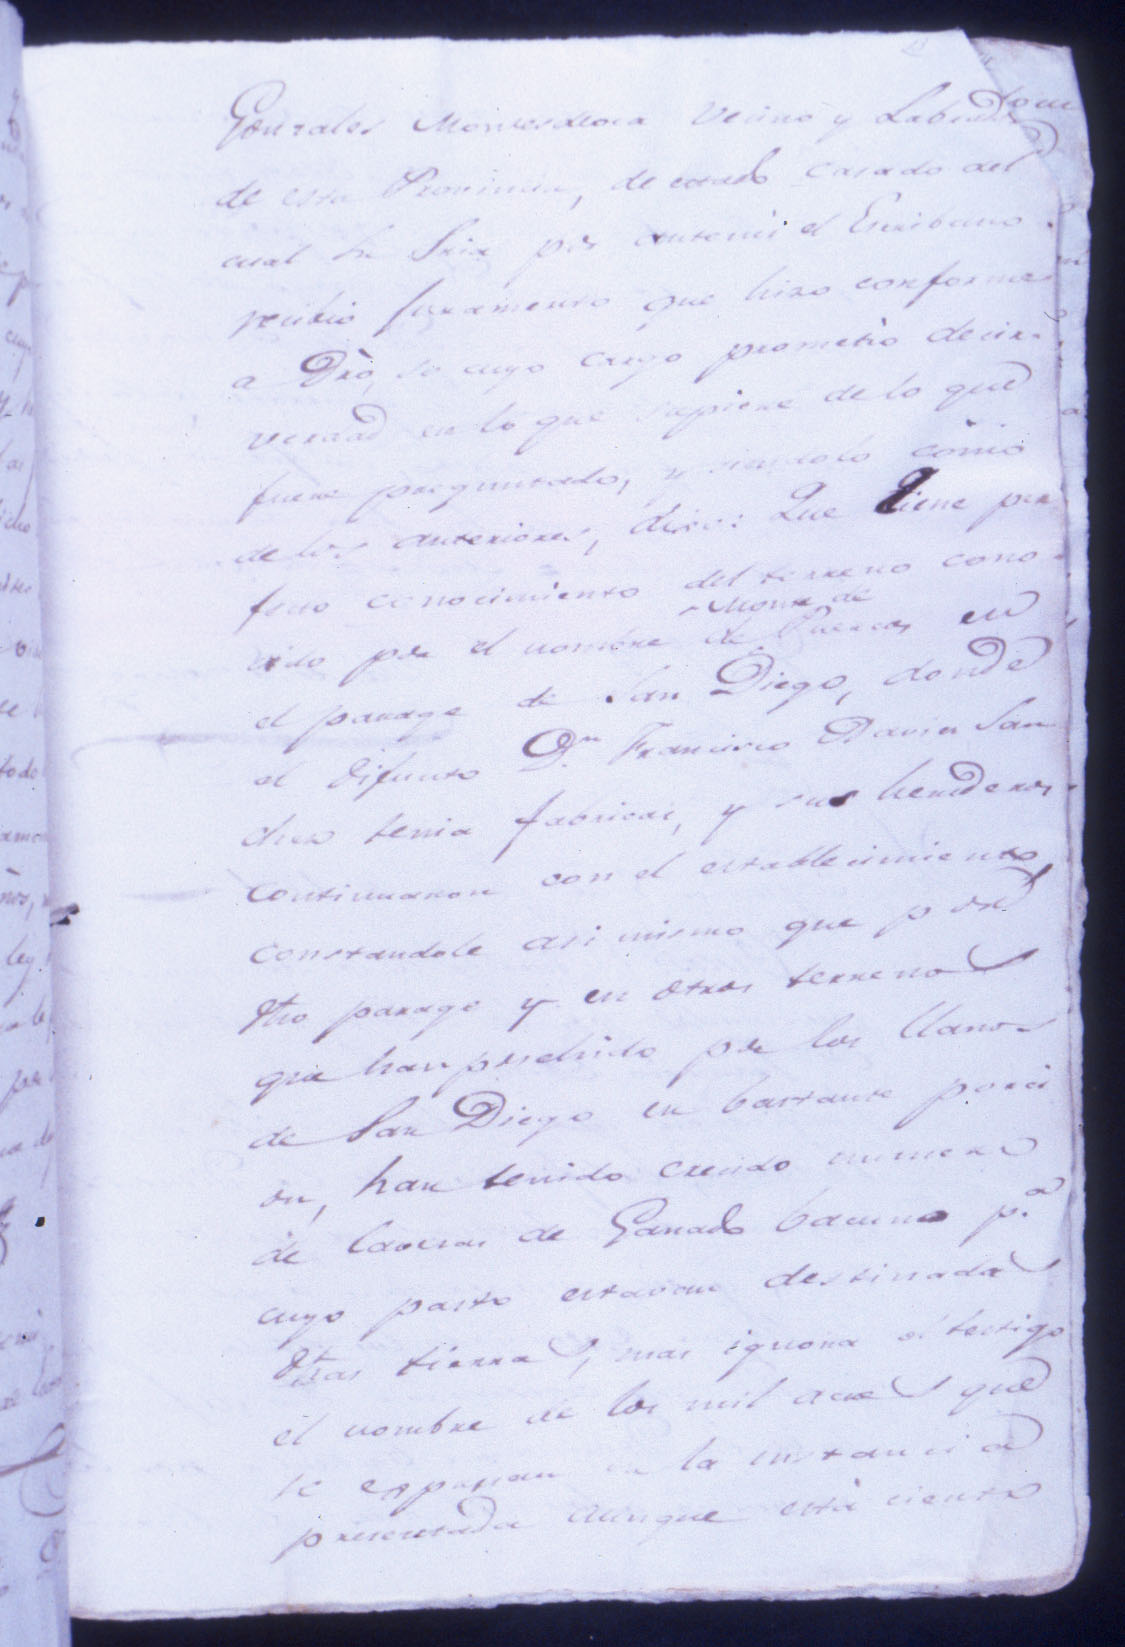 Gonzales Monsesdeoca Vecino y Labrador
de esta Provincia, de estado casado del
cual Su Sria por antemi el Escribano
recibio juramento que hizo conforme
a Dro, so cuyo cargo prometiò decir
verdad en lo que supiere de lo que
fuere preguntado, y siendolo como
de los anteriores, dixo: Que tiene per
fecto conocimiento del terreno cono-
cido por el nombre Monte de de Puercos en
el parage de San Diego, donde
el difunto Dn Francisco Xavier San
ches tenia fabricas, y sus herederos
continuaron con el establecimiento,
constandole asi mismo que por
dho parage y en otros terrenos
que han posehido por los Llanos
de San Diego en bastante porci
on, han tenido crecido numero
de Cavesas de Ganado bacuno pa
cuyo pasto estavan destinadas
dhas tierras, mas ignora el testigo
el nombre de los mil aces que
se expresan en la instancia
presentada aunque està cierto